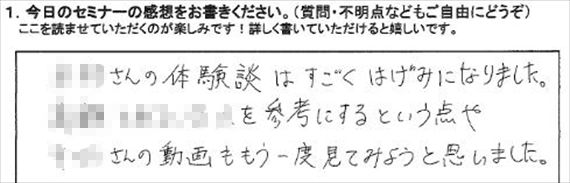 1. 今日のセミナーの感想をお書きください。(質問・不明点などもご自由にどうぞ)
ここを読ませていただくのが楽しみです!詳しく書いていただけると嬉しいです。
さんの体験談はすごくはげみになりました。
を参考にするという点や
さんの動画ももう一度見てみようと思いました。